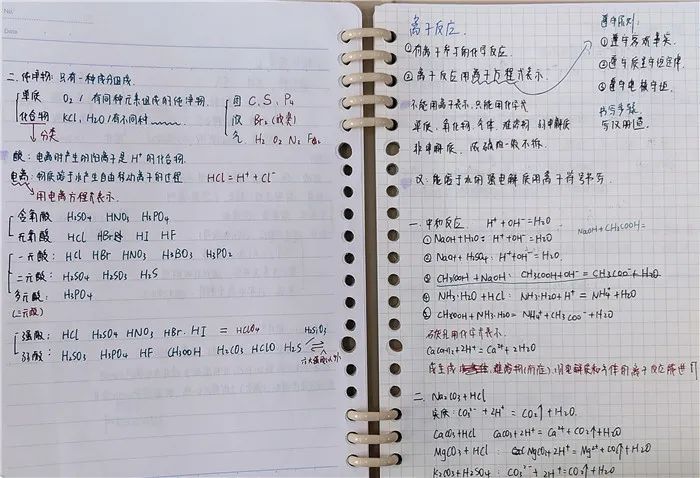 No.
Date
二.纯净物:只有一种成分组成.
单质 O₂ / 有同种元素组成的纯净物.
化合物 KCl, H₂O / 有不同种
分类
固 C, S, P₄
液 Br₂
气 H₂ O₂ N₂ F₂
酸:电离时产生的阳离子是 H⁺ 的化合物.
电离:物质溶于水产生自由移动离子的过程 HCl = H⁺ + Cl⁻
用电离方程式表示.
含氧酸 H₂SO₄ HNO₃ H₃PO₄
无氧酸 HCl HBr HI HF
一元酸: HCl HBr HNO₃ H₃BO₃ H₃PO₂
二元酸: H₂SO₄ H₂SO₃ H₂S
多元酸: H₃PO₄
(三元酸)
强酸: HCl H₂SO₄ HNO₃ HBr. HI = HClO₄
弱酸: H₂SO₃ H₃PO₄ HF CH₃COOH H₂CO₃ HClO H₂S H₂SiO₃
六大强酸以外
离子反应.
①有离子参加的化学反应.
②离子反应用离子方程式表示.
遵守原则:
①遵守客观事实.
②遵守质量守恒定律.
③遵守电荷守恒.
书写步骤
写仅用道.
不能用离子表示,只能用化学式
单质,氧化物,气体,难溶物,弱电解质
非电解质. 弱酸根一般不拆.
仅:能溶于水的强电解质用离子符号书写.
一.中和反应. H⁺ + OH⁻ = H₂O
NaOH + CH₃COOH =
① NaOH + H₂O: H⁺ + OH⁻ = H₂O.
② NaOH + H₂SO₄: H⁺ + OH⁻ = H₂O.
③ CH₃COOH + NaOH: CH₃COOH + OH⁻ = CH₃COO⁻ + H₂O
④ NH₃·H₂O + HCl: NH₃·H₂O + H⁺ = NH₄⁺ + H₂O
⑤ CH₃COOH + NH₃·H₂O = NH₄⁺ + CH₃COO⁻ + H₂O
用化学式表示.
Ca(OH)₂ + 2H⁺ = Ca²⁺ + 2H₂O
或生成 难溶物(前在),弱电解质和气体的离子反应能进行
二. Na₂CO₃ + HCl
实质: CO₃²⁻ + 2H⁺ = CO₂↑ + H₂O.
CaCO₃ + HCl CaCO₃ + 2H⁺ = Ca²⁺ + CO₂↑ + H₂O
MgCO₃ + HCl: MgCO₃ + 2H⁺ = Mg²⁺ + CO₂↑ + H₂O
K₂CO₃ + H₂SO₄: CO₃²⁻ + 2H⁺ = CO₂↑ + H₂O